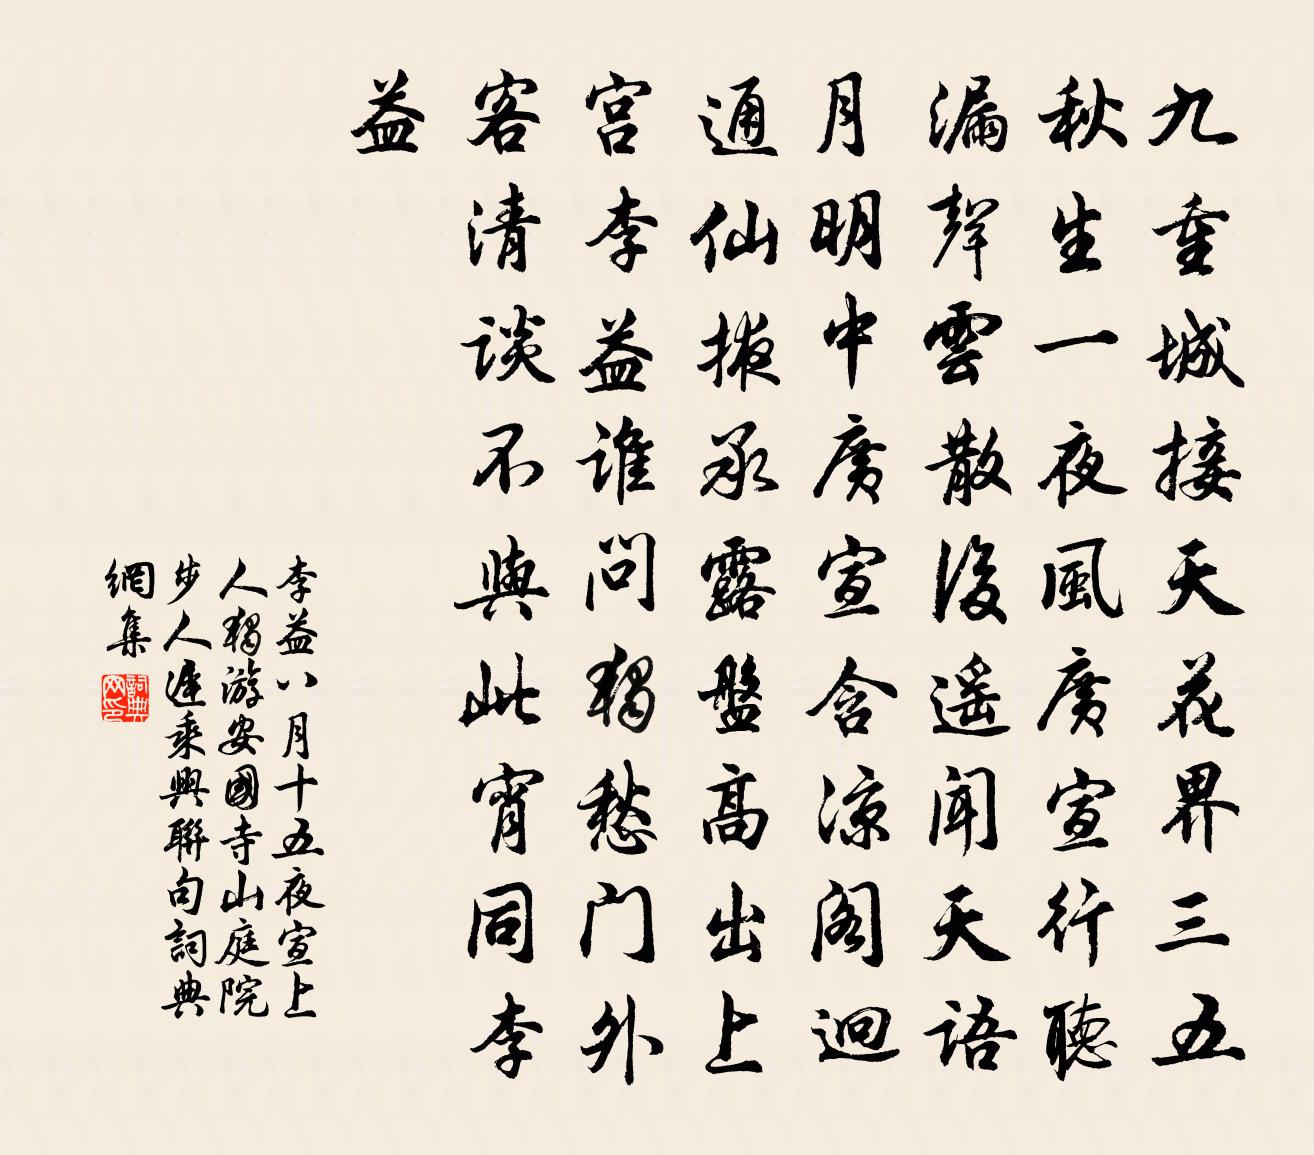 九重城接天花界三五
秋生一夜風廣宣行聽
漏聲雲散後遥聞天語
月明中廣宣含涼閣迴
通仙掖承露盤高出上
宮李益誰問獨愁门外
客清談不與此宵同李
益
李益八月十五夜宣上
人獨游安國寺山庭院
步人遲乘興聯句詞典
網集
詞典网印